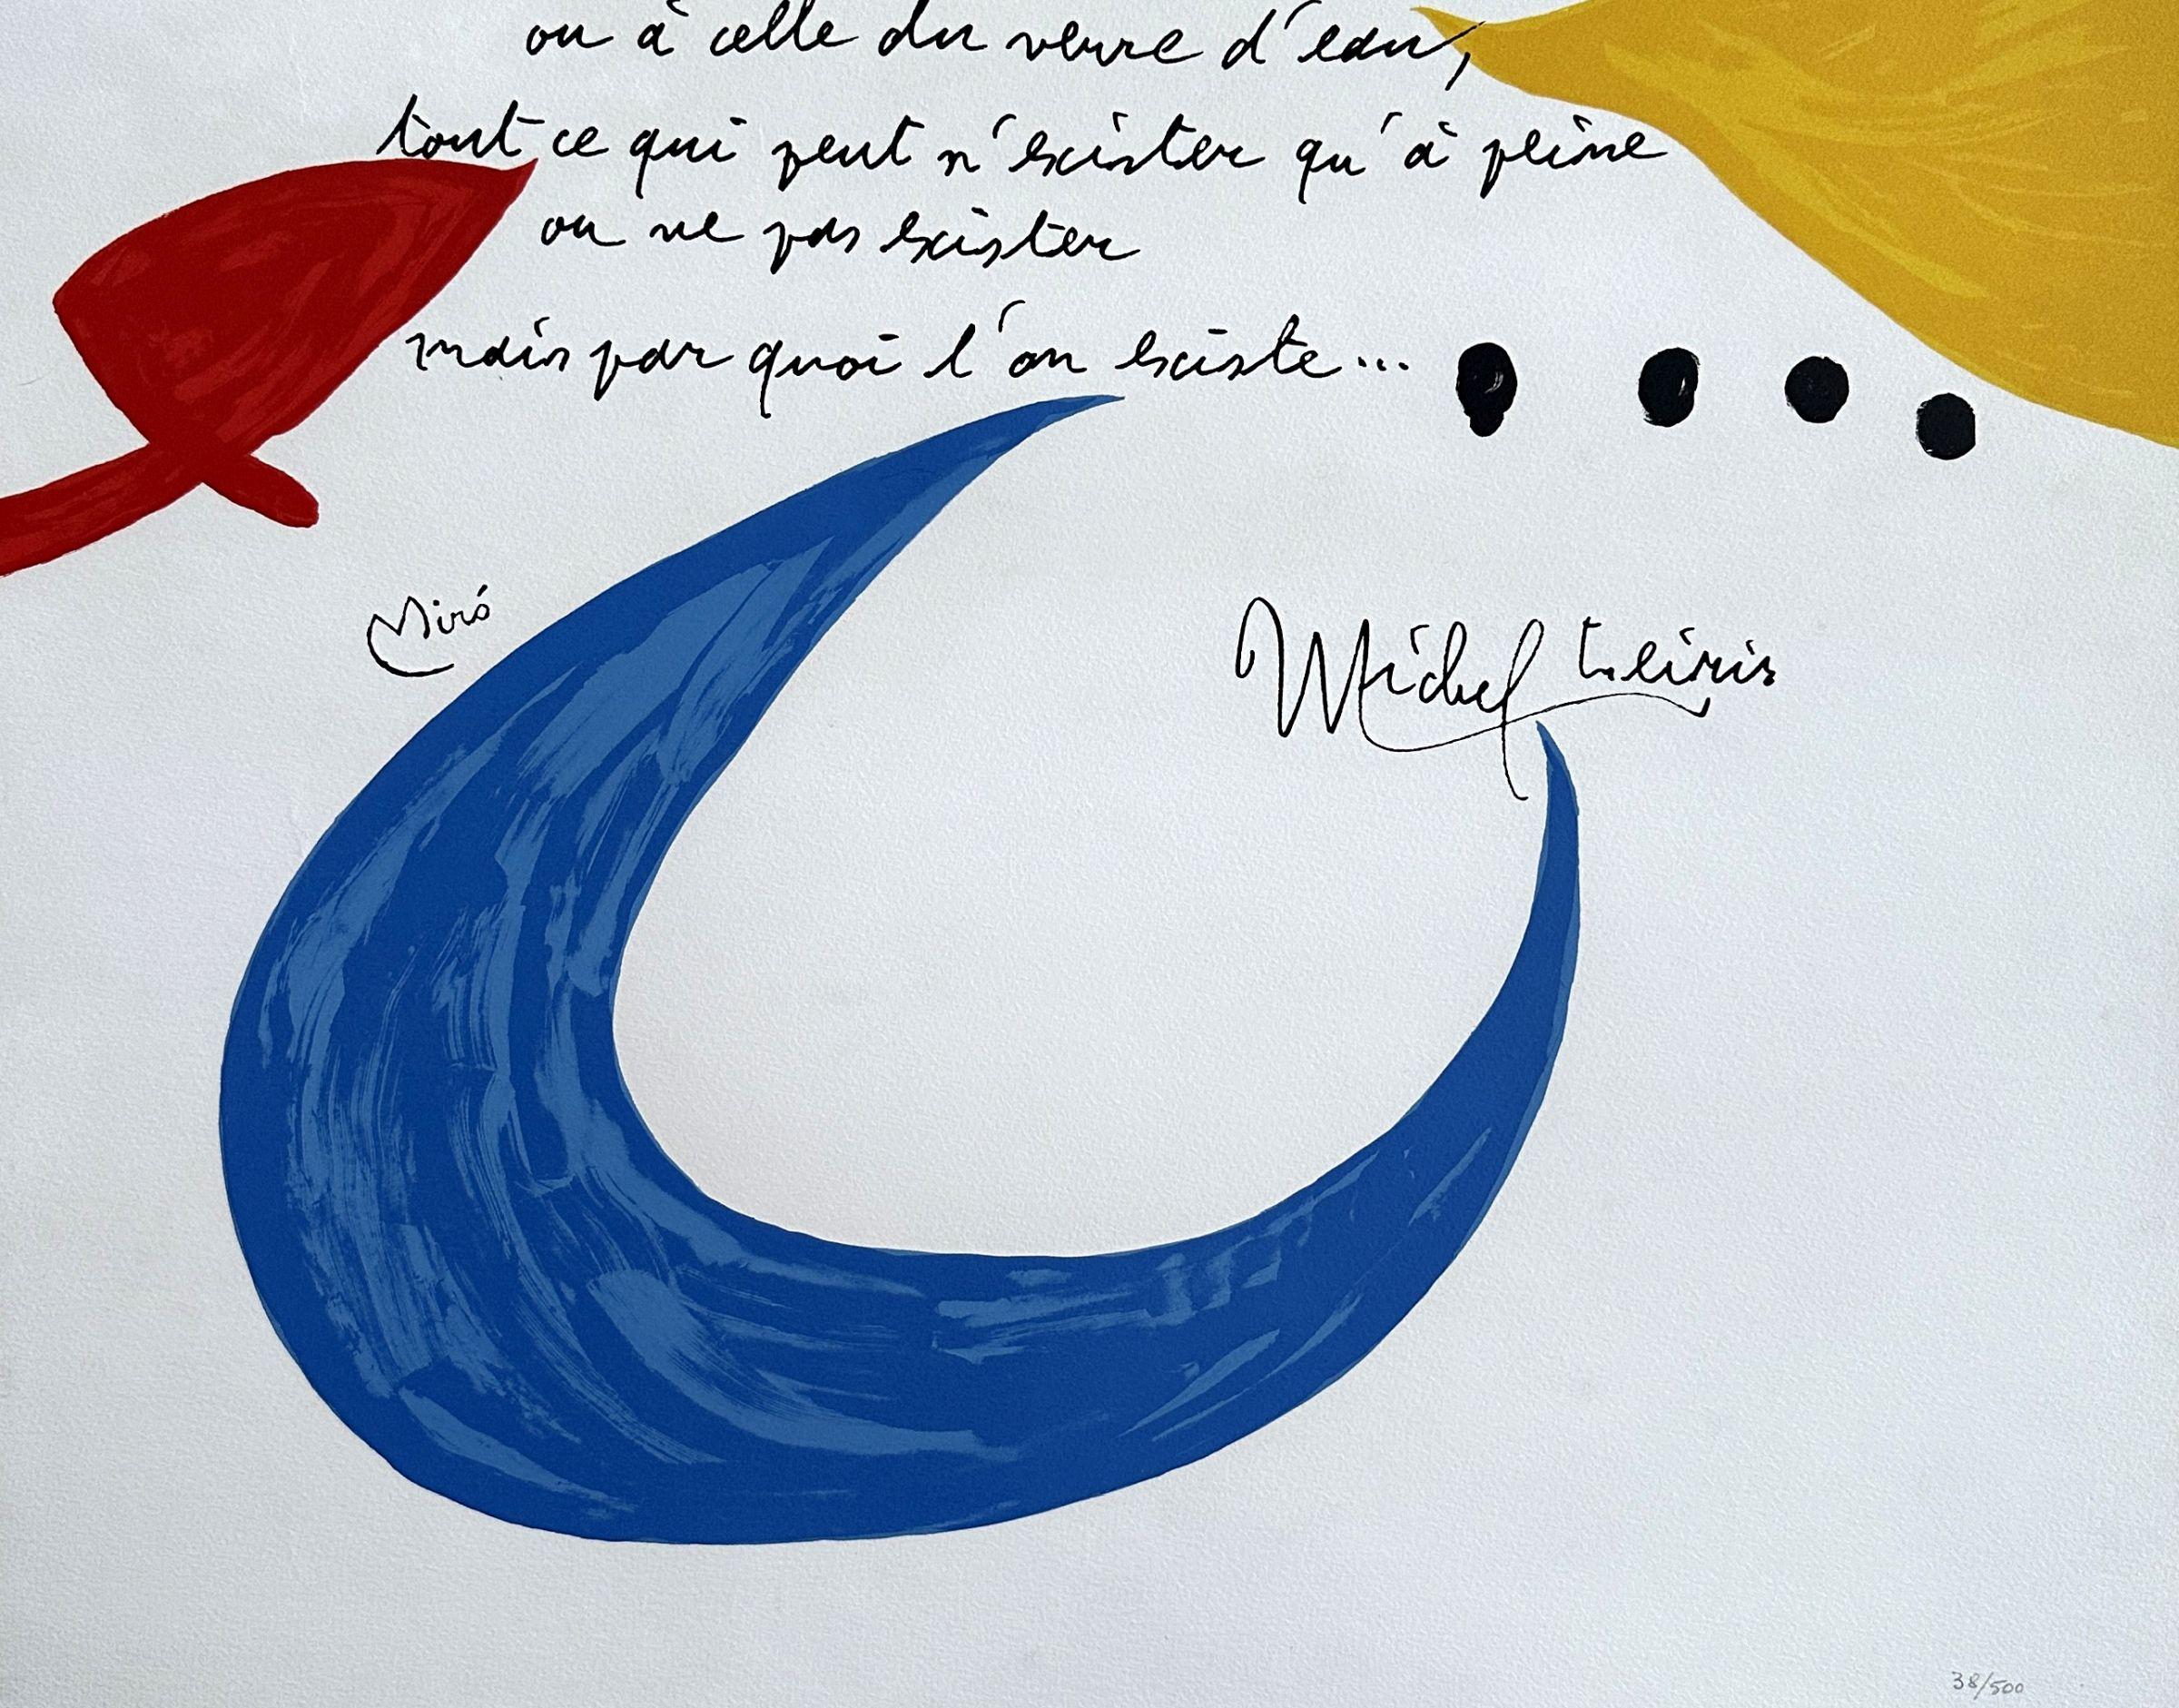 ou à celle du verre d'eau,
tout ce qui peut n'exister qu'à peine
ou ne pas exister
mais par quoi l'on existe...
Miró
Michel Leiris
38/500